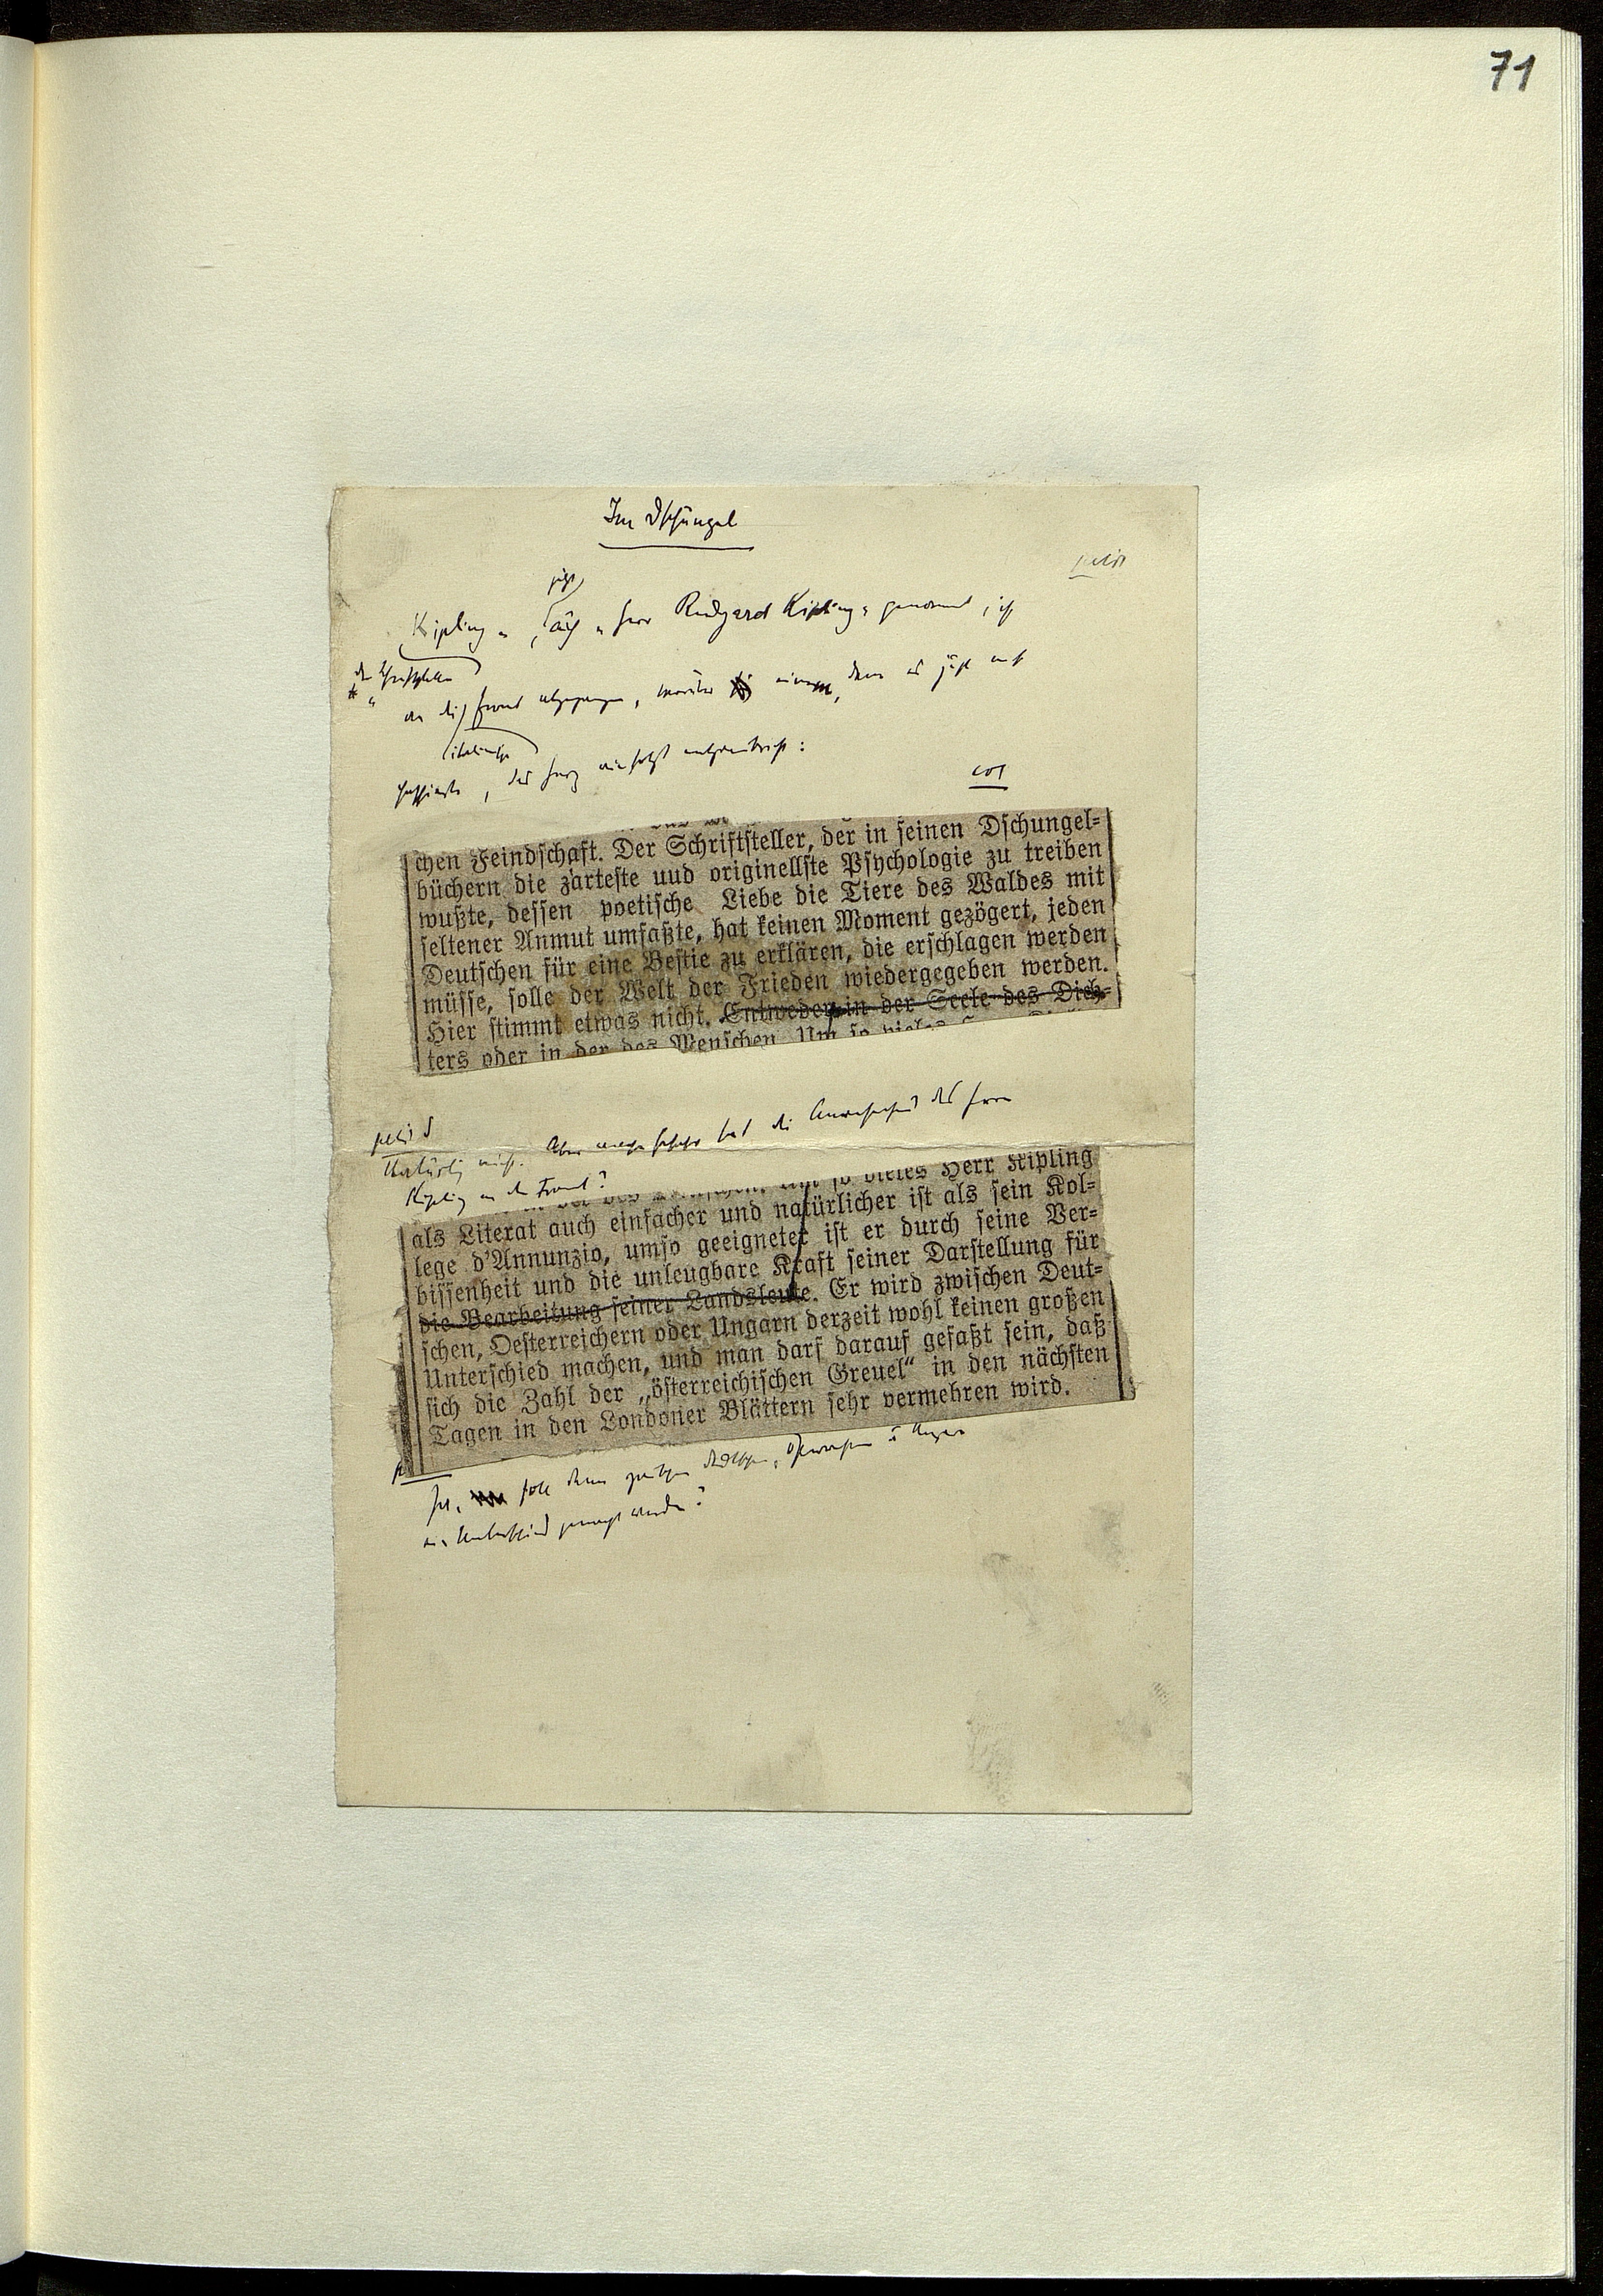 71
Im Dschungel
petit
jetzt
Kipling, auch „Herr Rudyard Kipling“ genannt, ist
der Schriftsteller
an die Front abgegangen, worüber einem, dem es jetzt auf
italienische
das Herz wie folgt :
chen Feindschaft. Der Schriftsteller, der in seinen Dschungel=
büchern die zärteste uud originellste Psychologie zu treiben
wußte, dessen poetische Liebe die Tiere des Waldes mit
seltener Anmut umfaßte, hat keinen Moment gezögert, jeden
Deutschen für eine Bestie zu erklären, die erschlagen werden
müsse, solle der Welt der Frieden wiedergegeben werden.
Hier stimmt etwas nicht. Entweder in der Seele des Dich=
ters oder in der des Menschen. Um so vieles
petit
Natürlich nicht. Aber was hat die Anwesenheit des Herrn
Kipling an der Front?
Um so vieles Herr Kipling
als Literat auch einfacher und natürlicher ist als sein Kol=
lege d'Annunzio, umso geeigneter ist er durch seine Ver=
bissenheit und die unleugbare Kraft seiner Darstellung für
die Bearbeitung seiner Landsleute. Er wird zwischen Deut=
schen, Oesterreichern oder Ungarn derzeit wohl keinen großen
Unterschied machen, und man darf darauf gefaßt sein, daß
sich die Zahl der „österreichischen Greuel“ in den nächsten
Tagen in den Londoner Blättern sehr vermehren wird.
Ja, soll denn zwischen Deutschen, Österreichern u Ungarn
ein Unterschied gemacht werden?